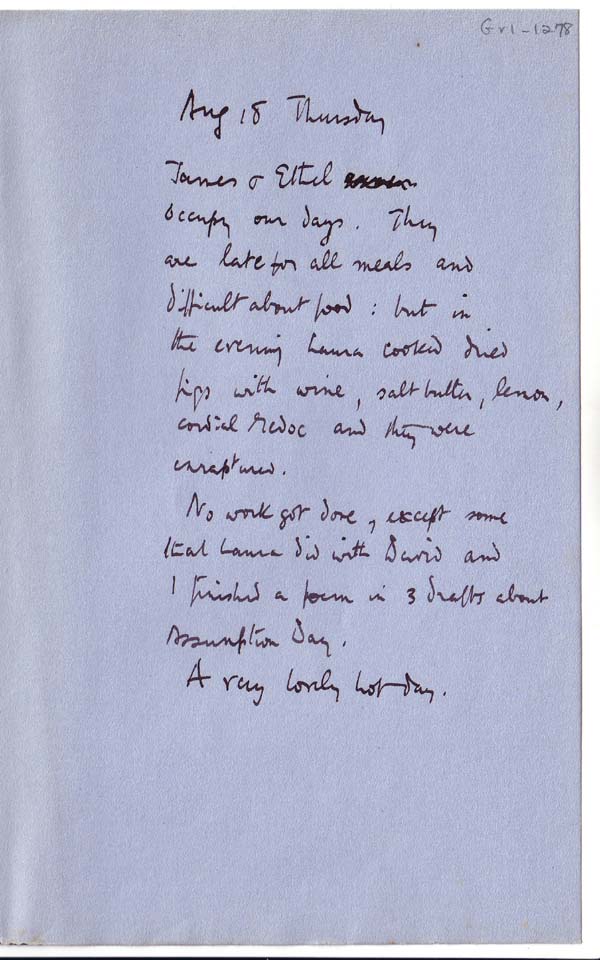 Gr1-1278
Aug 18 Thursday
James & Ethel
occupy our days. They
are late for all meals and
difficult about food : but in
the evening Laura cooked dried
figs with wine, salt butter, lemon,
cordial Medoc and they were
enraptured.
No work got done, except some
that Laura did with David and
I finished a poem in 3 drafts about
Assumption Day.
A very lovely hot day.